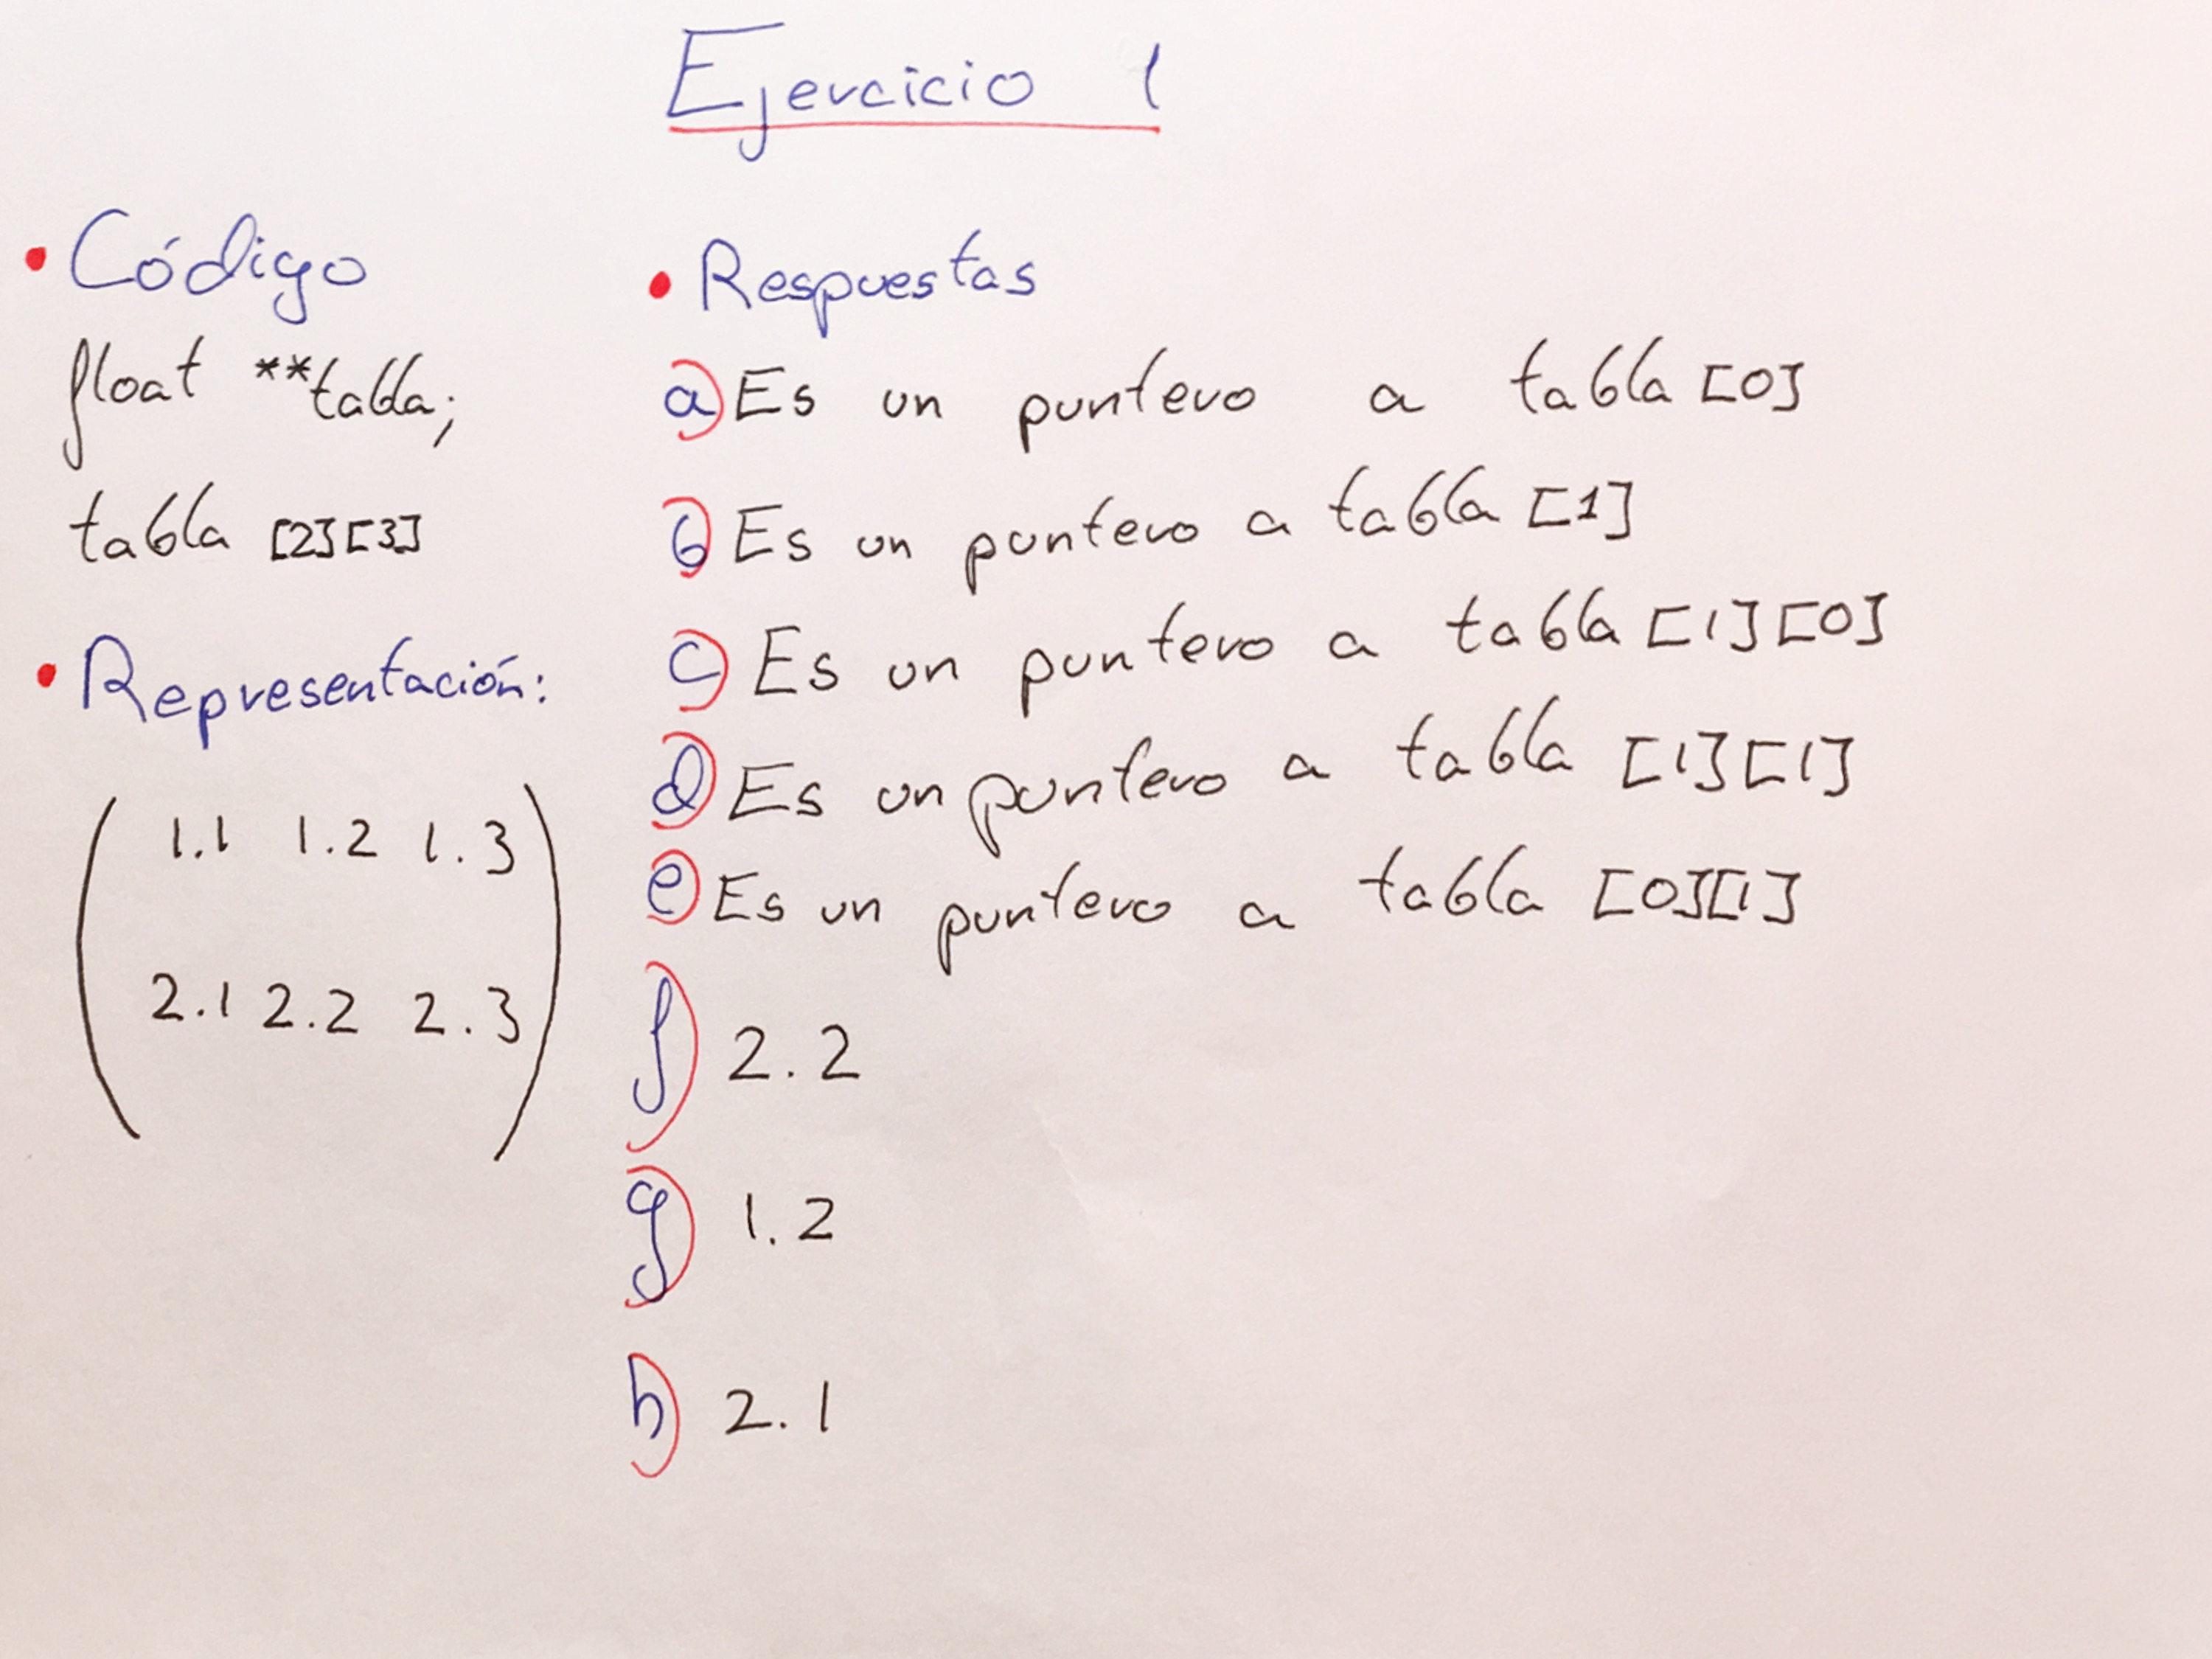 Ejercicio 1
• Código
float **tabla;
tabla [2][3]
• Representación:
1.1 1.2 1.3
2.1 2.2 2.3
• Respuestas
a) Es un puntero a tabla [0]
b) Es un puntero a tabla [1]
c) Es un puntero a tabla [1][0]
d) Es un puntero a tabla [1][1]
e) Es un puntero a tabla [0][1]
f) 2.2
g) 1.2
h) 2.1